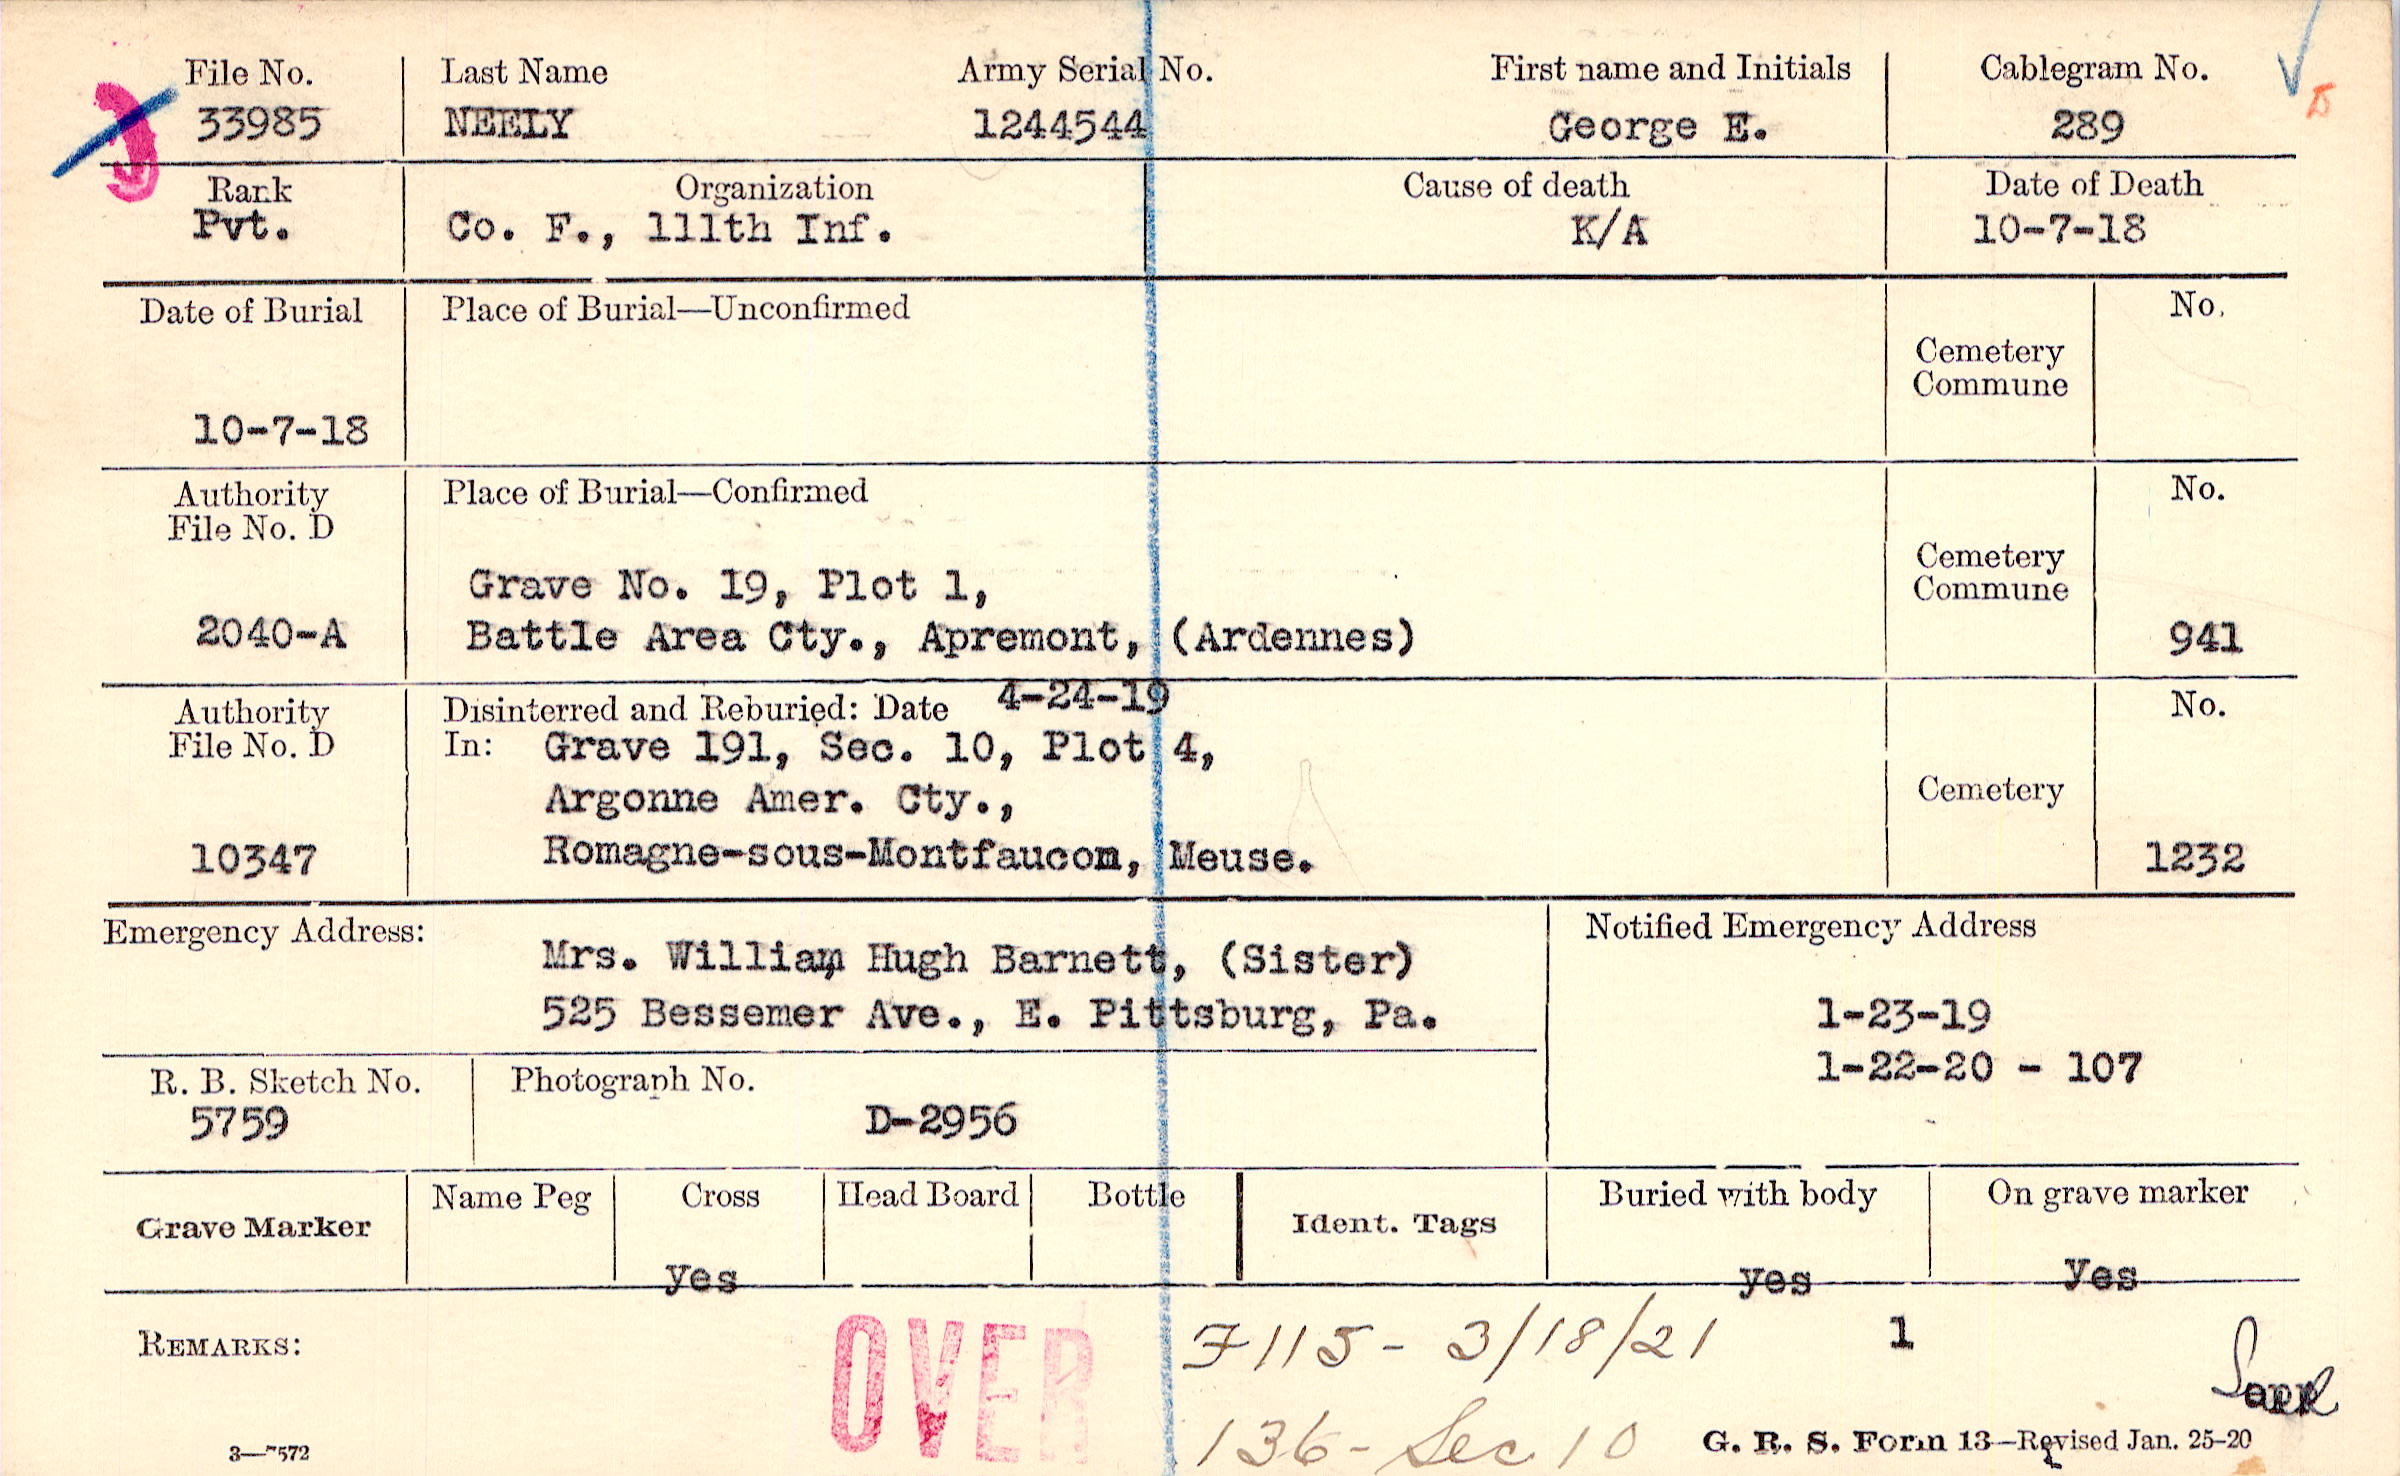 File No. Last Name Army Serial No. First name and Initials Cablegram No.
33985 NEELY 1244544 George E. 289
Rank Organization Cause of death Date of Death
Pvt. Co. F., 111th Inf. K/A 10-7-18
Date of Burial Place of Burial—Unconfirmed No.
Cemetery
Commune
10-7-18
Authority Place of Burial—Confirmed No.
File No. D
Cemetery
Commune
Grave No. 19, Plot 1,
2040-A Battle Area Cty., Apremont, (Ardennes) 941
Authority Disinterred and Reburied: Date 4-24-19 No.
File No. D In: Grave 191, Sec. 10, Plot 4,
Argonne Amer. Cty., Cemetery
10347 Romagne-sous-Montfaucon, Meuse. 1232
Emergency Address: Notified Emergency Address
Mrs. William Hugh Barnett, (Sister)
525 Bessemer Ave., E. Pittsburg, Pa. 1-23-19
1-22-20 - 107
R. B. Sketch No. Photograph No.
5759 D-2956
Name Peg Cross Head Board Bottle Buried with body On grave marker
Grave Marker Ident. Tags
yes yes yes
REMARKS: OVER F115- 3/18/21 1
136- Sec 10
3—7572 G. R. S. Form 13—Revised Jan. 25-20